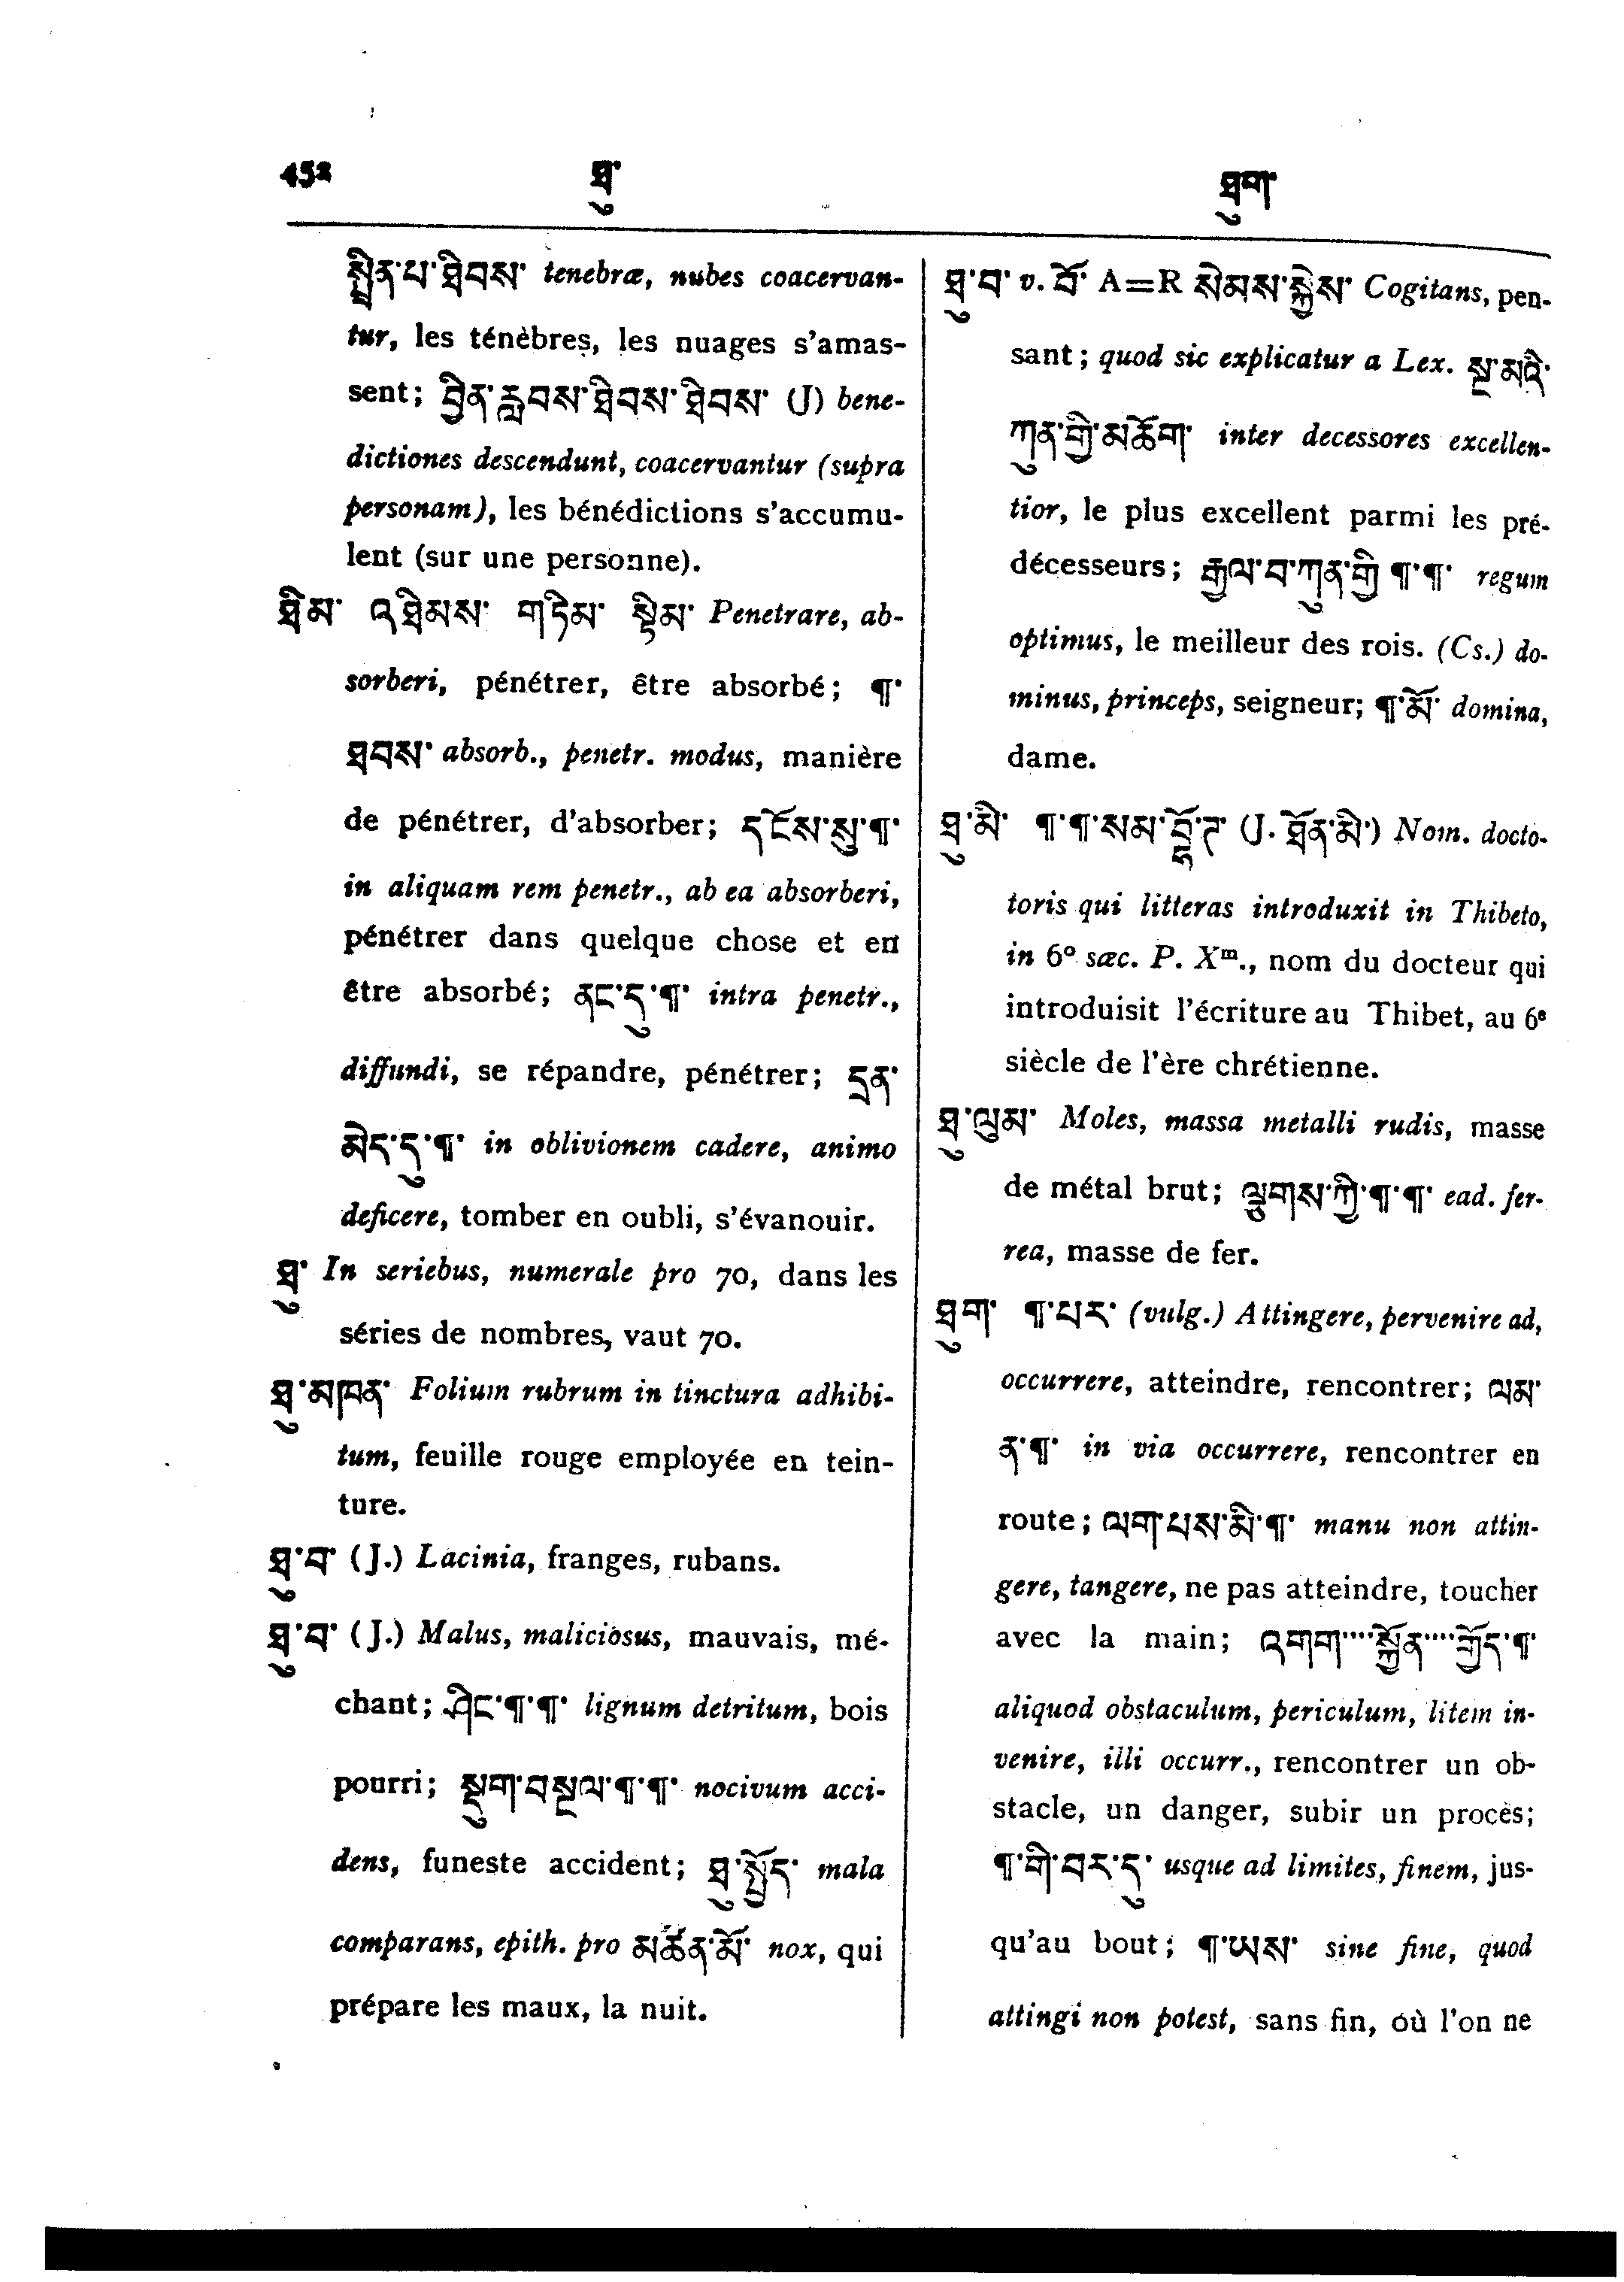 452
ཐུ་
ཐུག་
སྤྲིན་པ་ཐིབས་ tenebræ, nubes coacervan-
tur, les ténèbres, les nuages s'amas-
sent; བྱིན་རླབས་ཐིབས་ཐིབས་ (J) bene-
dictiones descendunt, coacervantur (supra
personam), les bénédictions s'accumu-
lent (sur une personne).
ཐིམ་ འཐིམས་ གཏིམ་ སྟིམ་ Penetrare, ab-
sorberi, pénétrer, être absorbé; ¶་
ཐབས་ absorb., penetr. modus, manière
de pénétrer, d'absorber; དངོས་སུ་¶་
in aliquam rem penetr., ab ea absorberi,
pénétrer dans quelque chose et en
être absorbé; ནང་དུ་¶་ intra penetr.,
diffundi, se répandre, pénétrer; དྲན་
མེད་དུ་¶་ in oblivionem cadere, animo
deficere, tomber en oubli, s'évanouir.
ཐུ་ In seriebus, numerale pro 70, dans les
séries de nombres, vaut 70.
ཐུ་མཁན་ Folium rubrum in tinctura adhibi-
tum, feuille rouge employée en tein-
ture.
ཐུ་བ་ (J.) Lacinia, franges, rubans.
ཐུ་བ་ (J.) Malus, maliciosus, mauvais, mé-
chant; ཤིང་¶་¶་ lignum detritum, bois
pourri; སྡུག་བསྔལ་¶་¶་ nocivum acci-
dens, funeste accident; ཐུ་སྤྱོད་ mala
comparans, epith. pro མཚན་མོ་ nox, qui
prépare les maux, la nuit.
ཐུ་བ་ v. བོ་ A=R སེམས་སྐྱེས་ Cogitans, pen-
sant; quod sic explicatur a Lex. སྔ་མའི་
ཀུན་གྱི་མཆོག་ inter decessores excellen-
tior, le plus excellent parmi les pré-
décesseurs; རྒྱལ་བ་ཀུན་གྱི ¶་¶་ regum
optimus, le meilleur des rois. (Cs.) do-
minus, princeps, seigneur; ¶་མོ་ domina,
dame.
ཐུ་མི་ ¶་¶་སམ་བྷོ་ཊ་ (J. ཐོན་མི་) Nom. docto-
toris qui litteras introduxit in Thibeto,
in 6º sæc. P. Xᵐ., nom du docteur qui
introduisit l'écriture au Thibet, au 6ᵉ
siècle de l'ère chrétienne.
ཐུ་ལུམ་ Moles, massa metalli rudis, masse
de métal brut; ལྕགས་ཀྱི་¶་¶་ ead. fer-
rea, masse de fer.
ཐུག་ ¶་པར་ (vulg.) Attingere, pervenire ad,
occurrere, atteindre, rencontrer; ལམ་
ན་¶་ in via occurrere, rencontrer en
route; ལག་པས་མི་¶་ manu non attin-
gere, tangere, ne pas atteindre, toucher
avec la main; འགག་....སྐྱོན་....གྱོད་¶་
aliquod obstaculum, periculum, litem in-
venire, illi occurr., rencontrer un ob-
stacle, un danger, subir un procès;
¶་གི་བར་དུ་ usque ad limites, finem, jus-
qu'au bout; ¶་ཡས་ sine fine, quod
attingi non potest, sans fin, où l'on ne